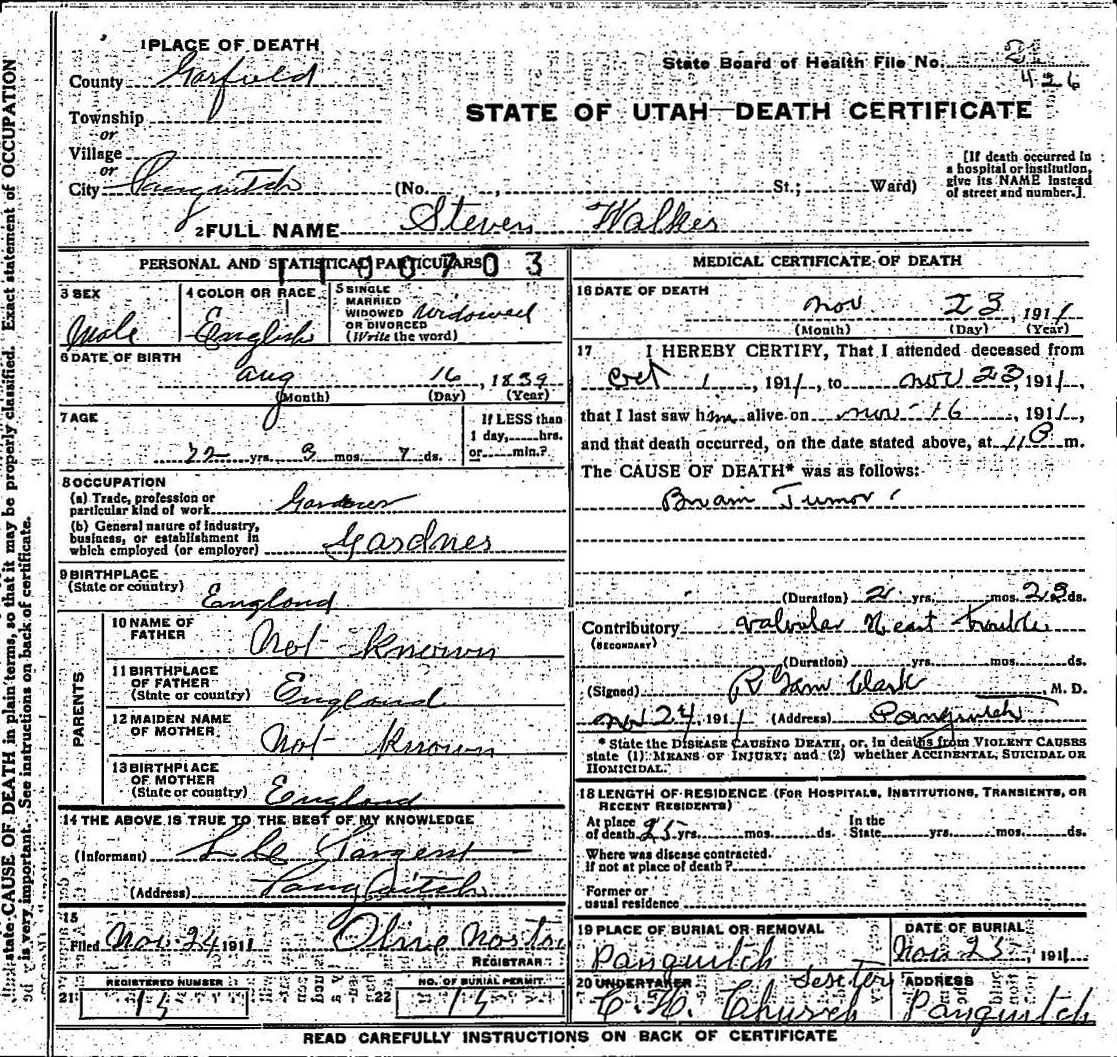 state CAUSE OF DEATH in plain terms, so that it may be properly classified. Exact statement of OCCUPATION
is very important. See instructions on back of certificate.
1 PLACE OF DEATH
County Garfield
State Board of Health File No. 21
426
STATE OF UTAH—DEATH CERTIFICATE
Township
or
Village
or
City Panguitch (No. , St.; Ward)
[If death occurred in
a hospital or institution,
give its NAME instead
of street and number.]
2 FULL NAME Steven Walker
PERSONAL AND STATISTICAL PARTICULARS
1100703
3 SEX
Male
4 COLOR OR RACE
English
5 SINGLE
MARRIED
WIDOWED
OR DIVORCED
(Write the word)
Widowed
6 DATE OF BIRTH
Aug 16, 1839
(Month) (Day) (Year)
7 AGE
72 yrs. 3 mos. 7 ds.
If LESS than
1 day, hrs.
or min.?
8 OCCUPATION
(a) Trade, profession or
particular kind of work Gardner
(b) General nature of industry,
business, or establishment in
which employed (or employer) Gardner
9 BIRTHPLACE
(State or country)
England
PARENTS
10 NAME OF
FATHER Not known
11 BIRTHPLACE
OF FATHER
(State or country) England
12 MAIDEN NAME
OF MOTHER Not known
13 BIRTHPLACE
OF MOTHER
(State or country) England
14 THE ABOVE IS TRUE TO THE BEST OF MY KNOWLEDGE
(Informant) Sargent
(Address) Panguitch
15
Filed Nov. 24 1911 Olive Norton
REGISTRAR
21 REGISTERED NUMBER
15
22 NO. OF BURIAL PERMIT
15
MEDICAL CERTIFICATE OF DEATH
16 DATE OF DEATH
Nov. 23, 1911
(Month) (Day) (Year)
17 I HEREBY CERTIFY, That I attended deceased from
Oct 1, 1911, to Nov 23, 1911,
that I last saw him alive on Nov-16, 1911,
and that death occurred, on the date stated above, at 11 P m.
The CAUSE OF DEATH* was as follows:
Brain Tumor
(Duration) 2 yrs. mos. 23 ds.
Contributory Valvular Heart Trouble
(SECONDARY)
(Duration) yrs. mos. ds.
(Signed) R Garn Clark, M. D.
Nov 24, 1911 (Address) Panguitch
* State the DISEASE CAUSING DEATH, or, in deaths from VIOLENT CAUSES
state (1) MEANS OF INJURY; and (2) whether ACCIDENTAL, SUICIDAL OR
HOMICIDAL.
18 LENGTH OF RESIDENCE (FOR HOSPITALS, INSTITUTIONS, TRANSIENTS, OR
RECENT RESIDENTS)
At place
of death 25 yrs. mos. ds.
In the
State yrs. mos. ds.
Where was disease contracted.
if not at place of death?
Former or
usual residence
19 PLACE OF BURIAL OR REMOVAL
Panguitch
DATE OF BURIAL
Nov. 25, 1911
20 UNDERTAKER Sexton
C. H. Church
ADDRESS
Panguitch
READ CAREFULLY INSTRUCTIONS ON BACK OF CERTIFICATE